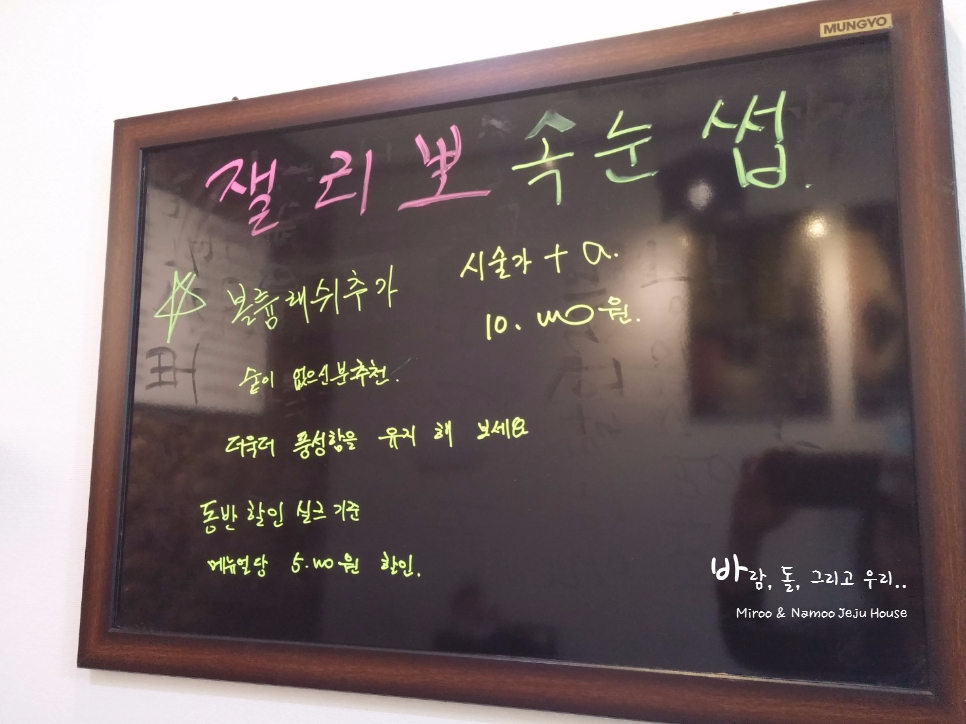 MUNGYO
잴리뽀 속눈썹.
볼륨래쉬추가 시술가 + a.
10.000원.
숱이 없으신분추천.
더욱더 풍성함을 유지 해 보세요
동반 할인 실크 기준
메뉴얼당 5.000원 할인.
바람, 돌, 그리고 우리..
Miroo & Namoo Jeju House